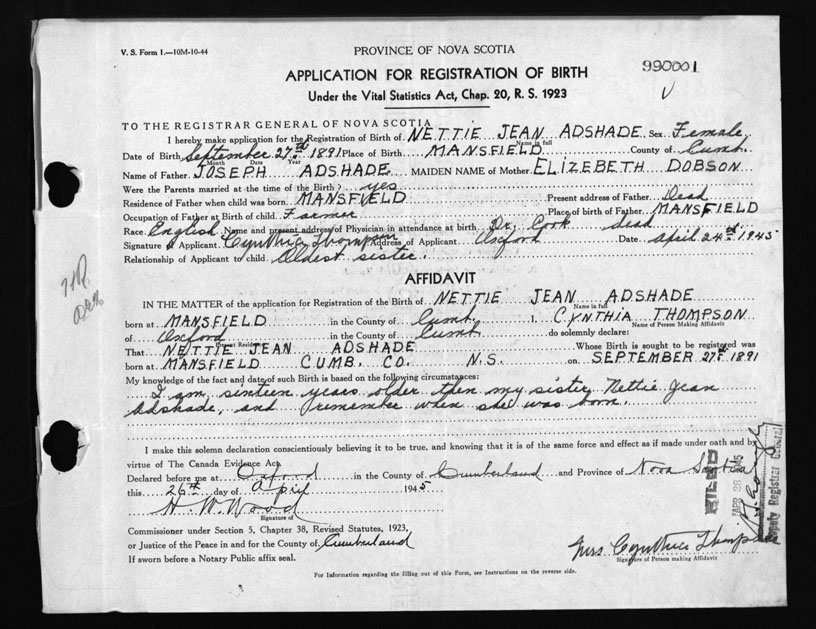 V. S. Form 1.—10M-10-44
PROVINCE OF NOVA SCOTIA
990001
APPLICATION FOR REGISTRATION OF BIRTH
Under the Vital Statistics Act, Chap. 20, R. S. 1923
TO THE REGISTRAR GENERAL OF NOVA SCOTIA
I hereby make application for the Registration of Birth of NETTIE JEAN ADSHADE Sex Female
Name in full
Date of Birth September 27th 1891 Place of Birth MANSFIELD County of Cumb.
Month Date Year
Name of Father JOSEPH ADSHADE MAIDEN NAME of Mother ELIZEBETH DOBSON
Were the Parents married at the time of the Birth? yes
Residence of Father when child was born MANSFIELD Present address of Father Dead
Occupation of Father at Birth of child Farmer Place of birth of Father MANSFIELD
Race English Name and present address of Physician in attendance at birth Dr. Cook dead
Signature of Applicant Cynthia Thompson Address of Applicant Oxford Date April 24th 1945
Relationship of Applicant to child Oldest sister.
AFFIDAVIT
IN THE MATTER of the application for Registration of the Birth of NETTIE JEAN ADSHADE
Name in full
born at MANSFIELD in the County of Cumb. I, CYNTHIA THOMPSON
Name of Person Making Affidavit
of Oxford in the County of Cumb. do solemnly declare:
Present Residence
That NETTIE JEAN ADSHADE Whose Birth is sought to be registered was
born at MANSFIELD CUMB. CO. N.S. on SEPTEMBER 27th 1891
My knowledge of the fact and date of such Birth is based on the following circumstances:
I am sixteen years older then my sister Nettie Jean
Adshade, and remember when she was born.
I make this solemn declaration conscientiously believing it to be true, and knowing that it is of the same force and effect as if made under oath and by
virtue of The Canada Evidence Act.
Declared before me at Oxford in the County of Cumberland and Province of Nova Scotia
this 26th day of April 1945
H. W. Wood
Signature of
Commissioner under Section 5, Chapter 38, Revised Statutes, 1923,
or Justice of the Peace in and for the County of Cumberland
If sworn before a Notary Public affix seal.
Mrs. Cynthia Thompson
Signature of Person making Affidavit
For Information regarding the filling out of this Form, see Instructions on the reverse side.
FILED
APR 28 1945
Deputy Registrar General